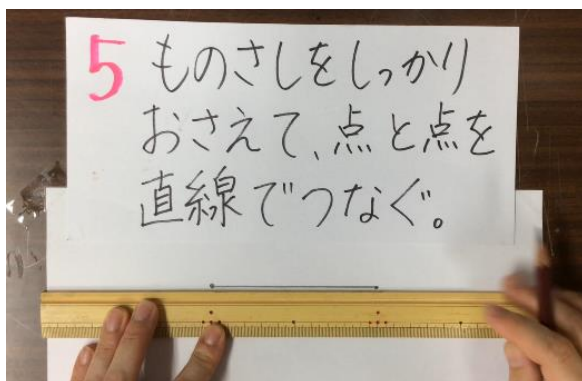 5 ものさしをしっかり
おさえて、点と点を
直線でつなぐ。